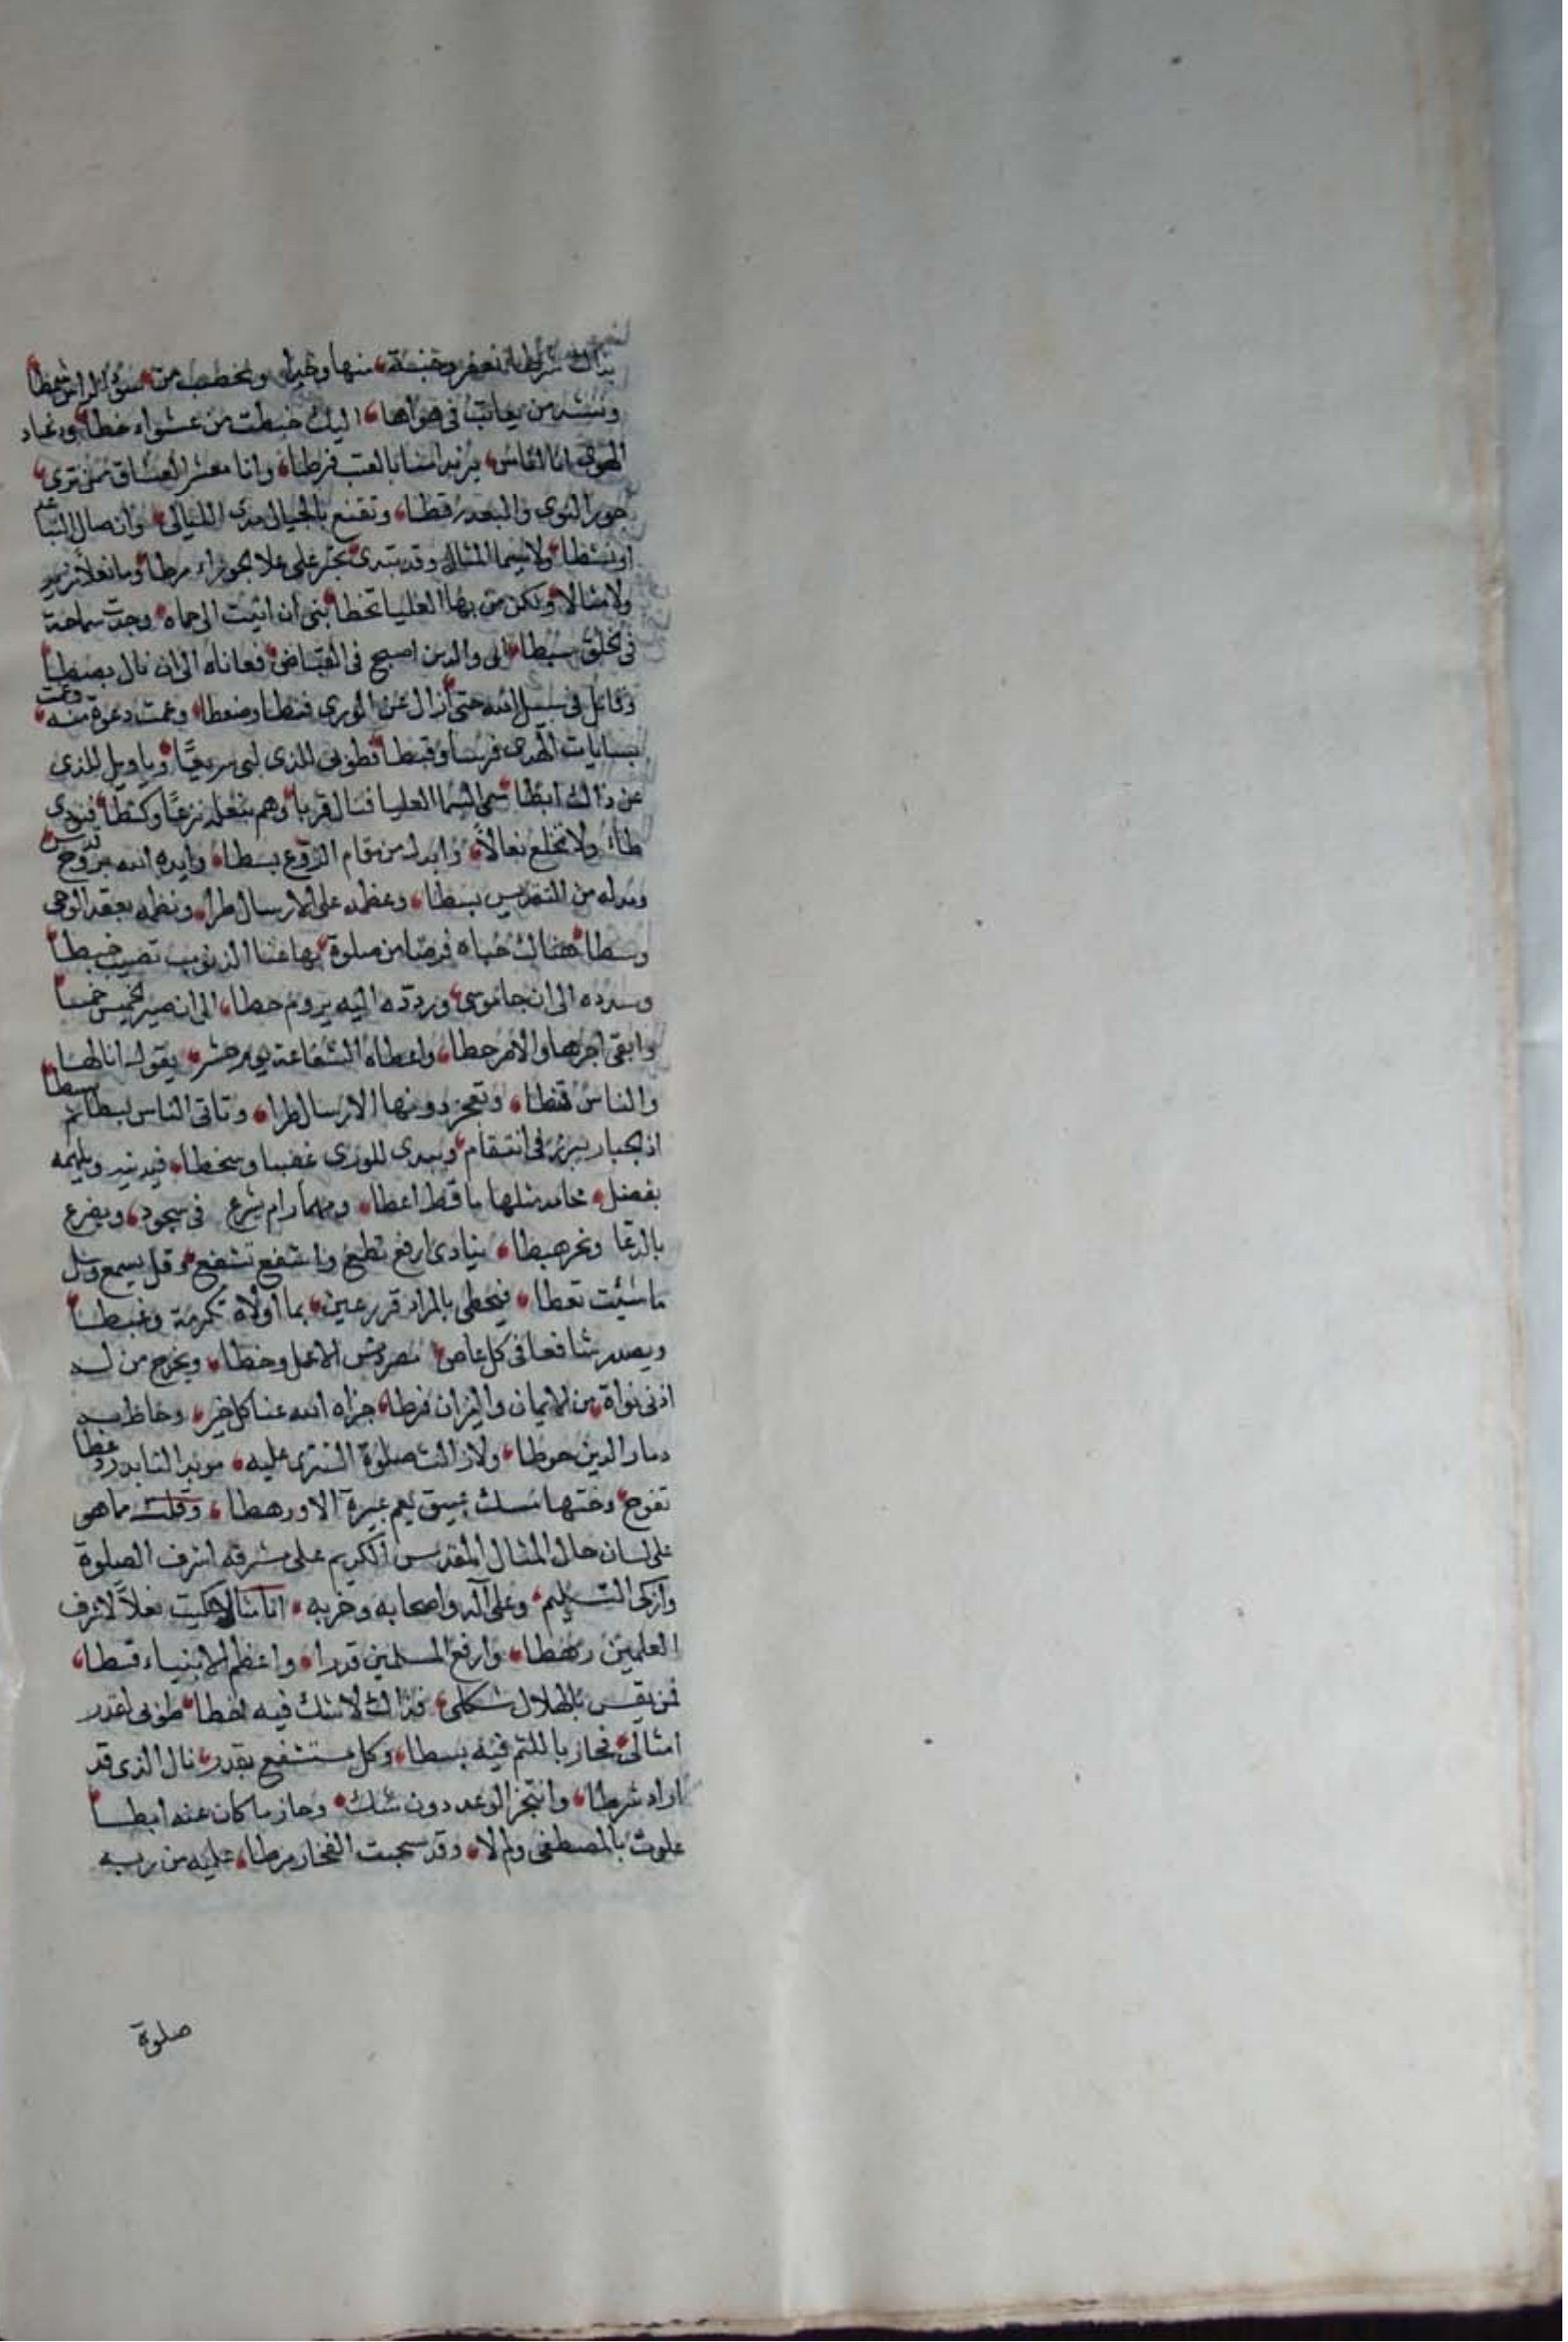 بذاك شرطا نعفر وجنة منها وخدا ونخضب من سود الراس شمطا
وننشد من يعاتب في هواها اليك خبطت من عشواء خطا
الهوى انا اناس يزيد اسنا بالعتب فرطا وانا معشر العشاق ممن ترى
جور النوى والبعد قطا وتقنع بالخيال مدى الليالي وان صال
او نشطا ولاسيما المثال وقد تبدى يجر على علا الجوزاء مرطا وما نعلا نريد
ولا مثالا ولكن من بها العليا تخطا نبى ان اتيت الى حماه وجدت سماحة
فى الخلق سبطا اتى والدين اصبح فى انقباض فعاناه الى ان نال بصطا
وقاتل فى سبيل الله حتى ازال عن الورى قنطا وضغطا وعمت دعوة منه
بسايات الهدى فرسا وقبطا فطوبى للذى لبى سريعا وياويل للذى
عن ذاك ابطا سمى لسما العليا فنال قربا وهم بنعله نزعا وكشطا فنودى
طاء ولا تخلع نعالا وابدل من مقام الروع بسطا وايده الله بروح قدس
ومد له من التقديس بسطا وعظمه على الارسال طرا ونظمه بعقد الوحى
وسطا هناك حباه فرضا من صلوة بها عنا الذنوب تصيب خبطا
وسرده الى ان جا موسى وردده اليه يروم حطا الى ان صير الخمس خمسا
وابقى اجرها والامر حطا واعطاه الشفاعة يوم حشر يقول انا لها
والناس قنطا وتعجز دونها الارسال طرا وتاتى الناس بسطا ثم بسطا
اذ الجبار يبرز فى انتقام ويبدى للورى غضبا وسخطا فيدنيه ويلهمه
بفضل محامد مثلها ما قط اعطا ومهما رام يشرع فى سجود ويضرع
بالدعا ونحر هبطا ينادى ارفع تطع واشفع تشفع وقل يسمع وسل
ما شئت تعطا فيحظى بالمراد قرير عين بما اولاه تكرمة وغبطا
ويصدر شافعا فى كل عاص الاعل وخطا ويخرج من له
ادنى نواة من الايمان والنزان فرطا جزاه الله عنا كل خير وحاط به
دمار الدين حوطا ولا زالت صلوة تترى عليه
تفوح وختمها مسك عبيق يعم عبيره الا ورهطا وقلت ما هو
على لسان حال المثال المقدس الكريم على مشرفه اشرف الصلوة
وازكى التسليم وعلى آله واصحابه وحزبه انا مثال حكيت نعلا لاشرف
العلمين رهطا وارفع المسلمين قدرا واعظم الانبياء قسطا
فمن يقس بالهلال شكلى فذاك لا شك فيه اخطا طوبى لمن قدر
امثالى فحاز باللثم فيه بسطا وكل مستشفع بقدر نال الذى قد
اراد شرطا وانتجز الوعد دون شك وحاز ما كان عنه ابطا
علوت بالمصطفى ولم لا وقد سحبت الفخار مرطا عليه من ربه
صلوة